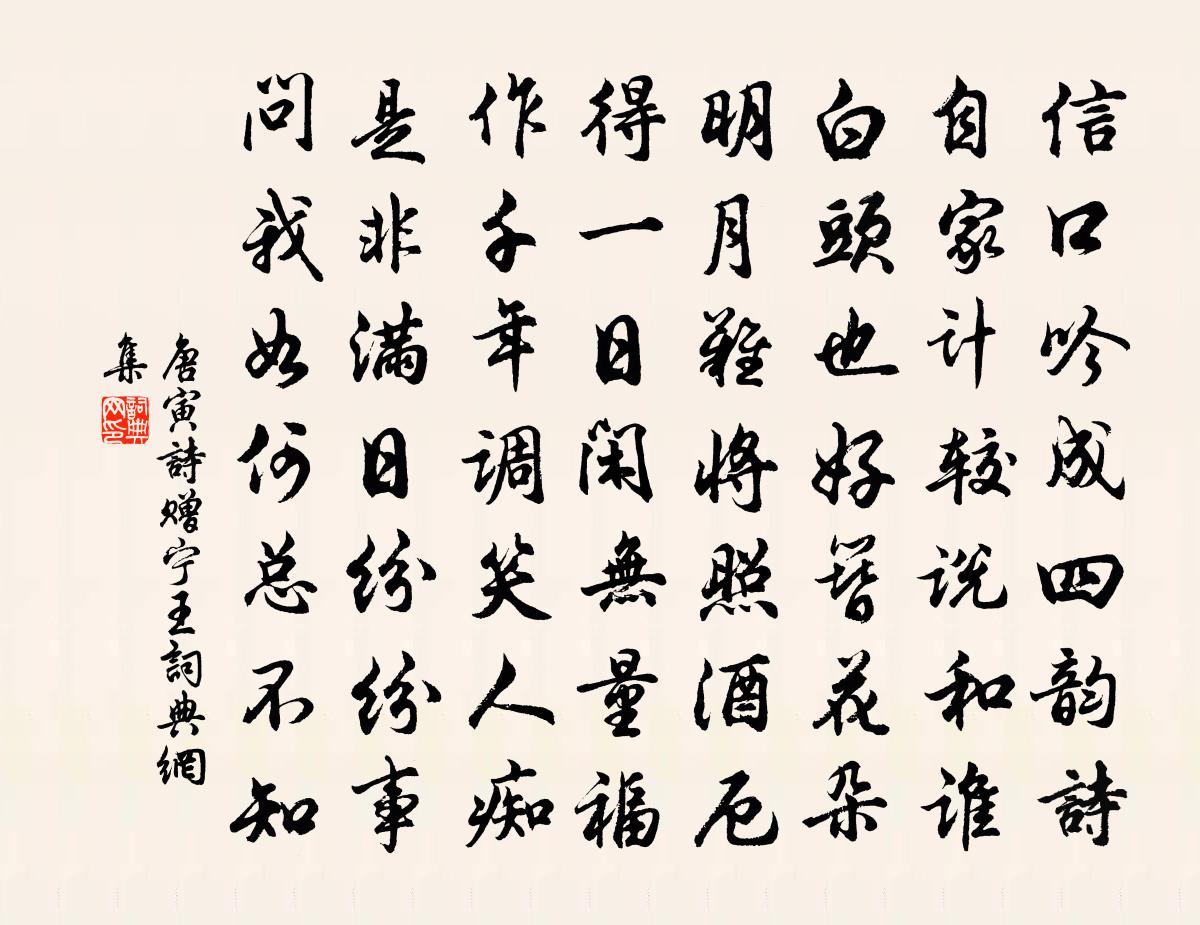 信口吟成四韵詩
自家计较说和谁
白頭也好簪花朵
明月難将照酒卮
得一日闲無量福
作千年调笑人痴
是非满日纷纷事
问我如何总不知
唐寅詩赠宁王詞典網
集
詞典网印